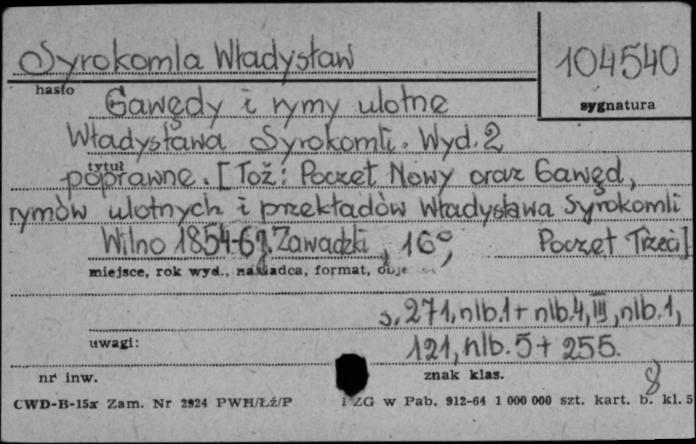 Syrokomla Władysław
104540
hasło
sygnatura
Gawędy i rymy ulotne
Władysława Syrokomli. Wyd. 2
tytuł
poprawne. [Toż: Poczet Nowy oraz Gawęd,
rymów ulotnych i przekładów Władysława Syrokomli
Wilno 1854-6 J. Zawadzki, 16°, Poczet Trzeci]
miejsce, rok wyd., nakładca, format, obję
s. 271, nlb. 1 + nlb. 4, III, nlb. 1,
uwagi:
121, nlb. 5 + 255.
nr inw.
znak klas.
8
CWD-B-15a Zam. Nr 2924 PWH/Łż/P
PZG w Pab. 912-64 1 000 000 szt. kart. b. kl. 5